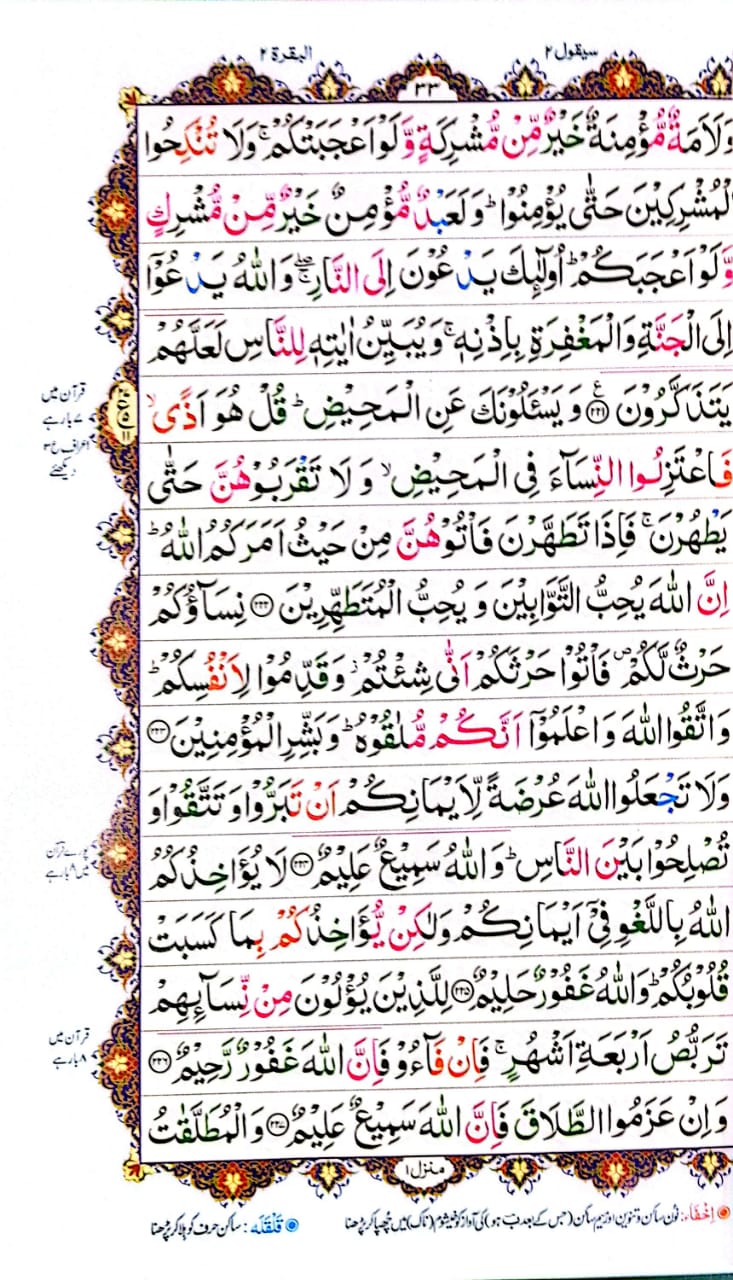 سیقول ٢
البقرة ٢
٣٣
وَلَاَمَةٌ مُّؤْمِنَةٌ خَيْرٌ مِّنْ مُّشْرِكَةٍ وَّلَوْ اَعْجَبَتْكُمْ ۚ وَلَا تُنْكِحُوا
الْمُشْرِكِيْنَ حَتّٰى يُؤْمِنُوْا ؕ وَلَعَبْدٌ مُّؤْمِنٌ خَيْرٌ مِّنْ مُّشْرِكٍ
وَّلَوْ اَعْجَبَكُمْ ؕ اُولٰٓئِكَ يَدْعُوْنَ اِلَى النَّارِ ۖۚ وَاللّٰهُ يَدْعُوْٓا
اِلَى الْجَنَّةِ وَالْمَغْفِرَةِ بِاِذْنِهٖ ۚ وَيُبَيِّنُ اٰيٰتِهٖ لِلنَّاسِ لَعَلَّهُمْ
يَتَذَكَّرُوْنَ ﴿٢٢١﴾ وَيَسْـَٔلُوْنَكَ عَنِ الْمَحِيْضِ ؕ قُلْ هُوَ اَذًى ۙ
فَاعْتَزِلُوا النِّسَآءَ فِى الْمَحِيْضِ ۙ وَلَا تَقْرَبُوْهُنَّ حَتّٰى
يَطْهُرْنَ ۚ فَاِذَا تَطَهَّرْنَ فَاْتُوْهُنَّ مِنْ حَيْثُ اَمَرَكُمُ اللّٰهُ ؕ
اِنَّ اللّٰهَ يُحِبُّ التَّوَّابِيْنَ وَيُحِبُّ الْمُتَطَهِّرِيْنَ ﴿٢٢٢﴾ نِسَآؤُكُمْ
حَرْثٌ لَّكُمْ ۪ فَاْتُوْا حَرْثَكُمْ اَنّٰى شِئْتُمْ ؗ وَقَدِّمُوْا لِاَنْفُسِكُمْ ؕ
وَاتَّقُوا اللّٰهَ وَاعْلَمُوْٓا اَنَّكُمْ مُّلٰقُوْهُ ؕ وَبَشِّرِ الْمُؤْمِنِيْنَ ﴿٢٢٣﴾
وَلَا تَجْعَلُوا اللّٰهَ عُرْضَةً لِّاَيْمَانِكُمْ اَنْ تَبَرُّوْا وَتَتَّقُوْا وَ
تُصْلِحُوْا بَيْنَ النَّاسِ ؕ وَاللّٰهُ سَمِيْعٌ عَلِيْمٌ ﴿٢٢٤﴾ لَا يُؤَاخِذُكُمُ
اللّٰهُ بِاللَّغْوِ فِىْٓ اَيْمَانِكُمْ وَلٰكِنْ يُّؤَاخِذُكُمْ بِمَا كَسَبَتْ
قُلُوْبُكُمْ ؕ وَاللّٰهُ غَفُوْرٌ حَلِيْمٌ ﴿٢٢٥﴾ لِلَّذِيْنَ يُؤْلُوْنَ مِنْ نِّسَآئِهِمْ
تَرَبُّصُ اَرْبَعَةِ اَشْهُرٍ ۚ فَاِنْ فَآءُوْ فَاِنَّ اللّٰهَ غَفُوْرٌ رَّحِيْمٌ ﴿٢٢٦﴾
وَاِنْ عَزَمُوا الطَّلَاقَ فَاِنَّ اللّٰهَ سَمِيْعٌ عَلِيْمٌ ﴿٢٢٧﴾ وَالْمُطَلَّقٰتُ
قرآن میں
٧ بار ہے
اعراف ع ٣
دیکھئے
ع
١١
پورے قرآن
میں ٨ بار ہے
قرآن میں
٨ بار ہے
منزل ١
اِخْفَاء: نون ساکن و تنوین اور میم ساکن (جس کے بعد ب ہو) کی آواز کو خیشوم (ناک) میں چھپا کر پڑھنا
قَلْقَلَہ: ساکن حرف کو ہلا کر پڑھنا